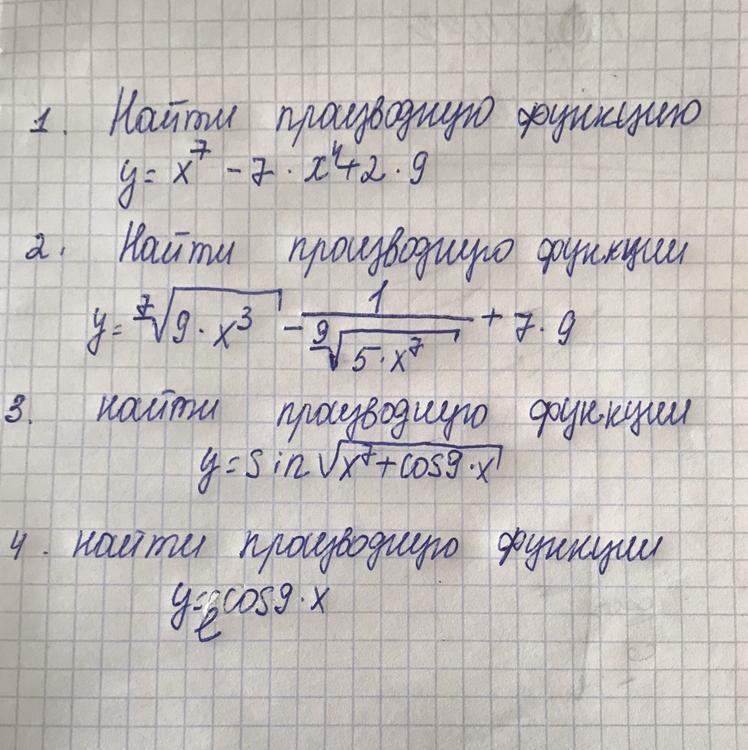 1. Найти производную функцию
y = x⁷ - 7 · x⁴ + 2 · 9
2. Найти производную функции
y = ⁷√(9 · x³) - 1/⁹√(5 · x⁷) + 7 · 9
3. найти производную функции
y = sin √(x⁷ + cos 9 · x)
4. найти производную функции
y = e^(cos 9 · x)